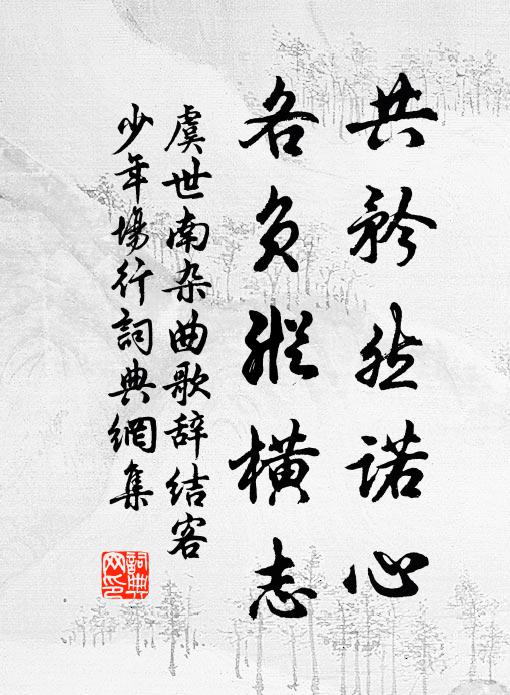 共矜然诺心
各负纵横志
虞世南杂曲歌辞结客
少年场行詞典網集
詞典
网印